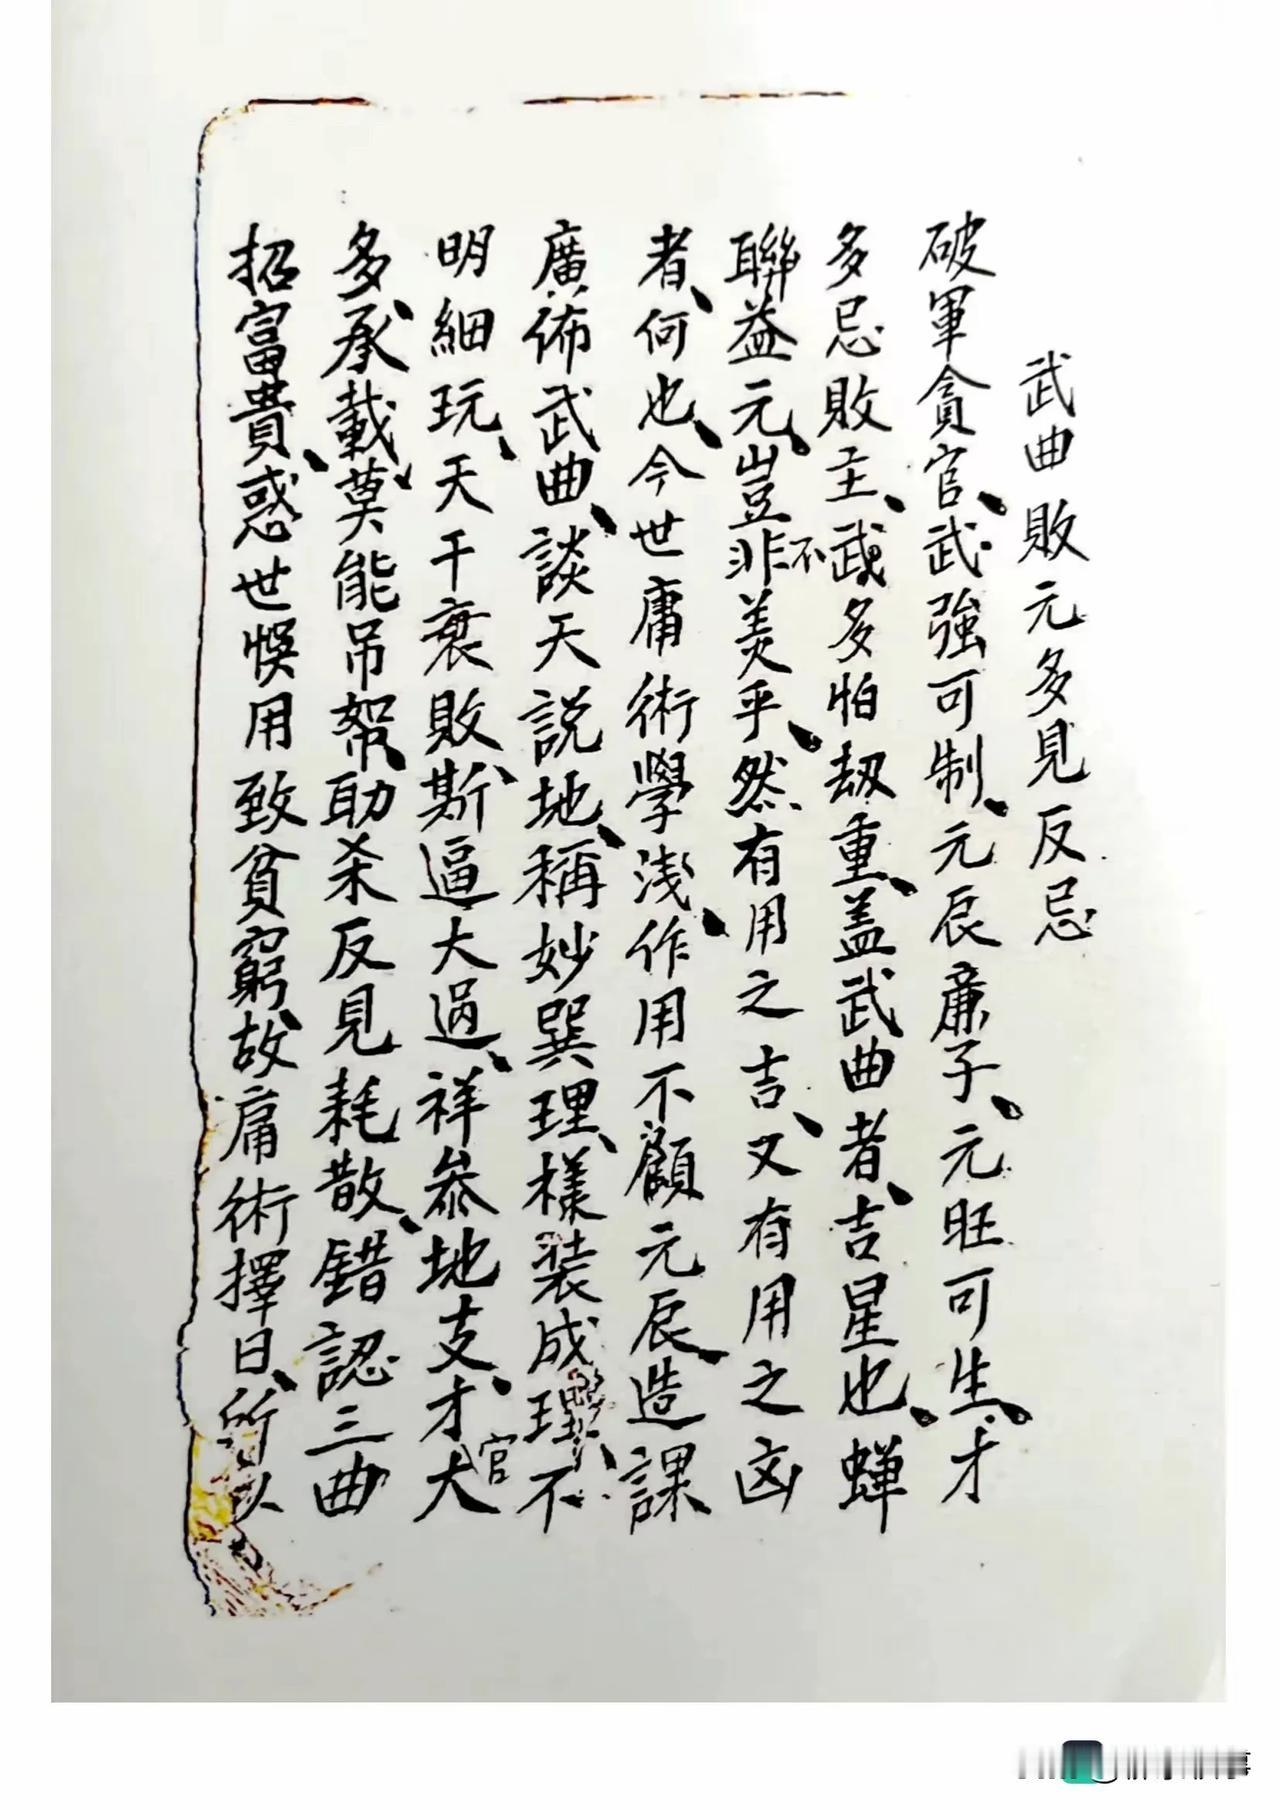 武曲敗元多見反忌
破軍貪官、武強可制、元辰廉子、元旺可生、才
多忌敗主、武多怕刼重、盖武曲者、吉星也、蝉
聯益元、豈非不美乎、然有用之吉、又有用之凶
者、何也、今世庸術學淺、作用不顧元辰、造課
廣佈武曲、談天説地、稱妙巽理、樣装成理、不
明細玩、天干衰敗、斯逼大過、祥叅地支、才官大
多、承載、莫能吊帮、助杀反見耗散、錯認三曲
招富貴、惑世悮用致貧窮、故庸術擇日、所以